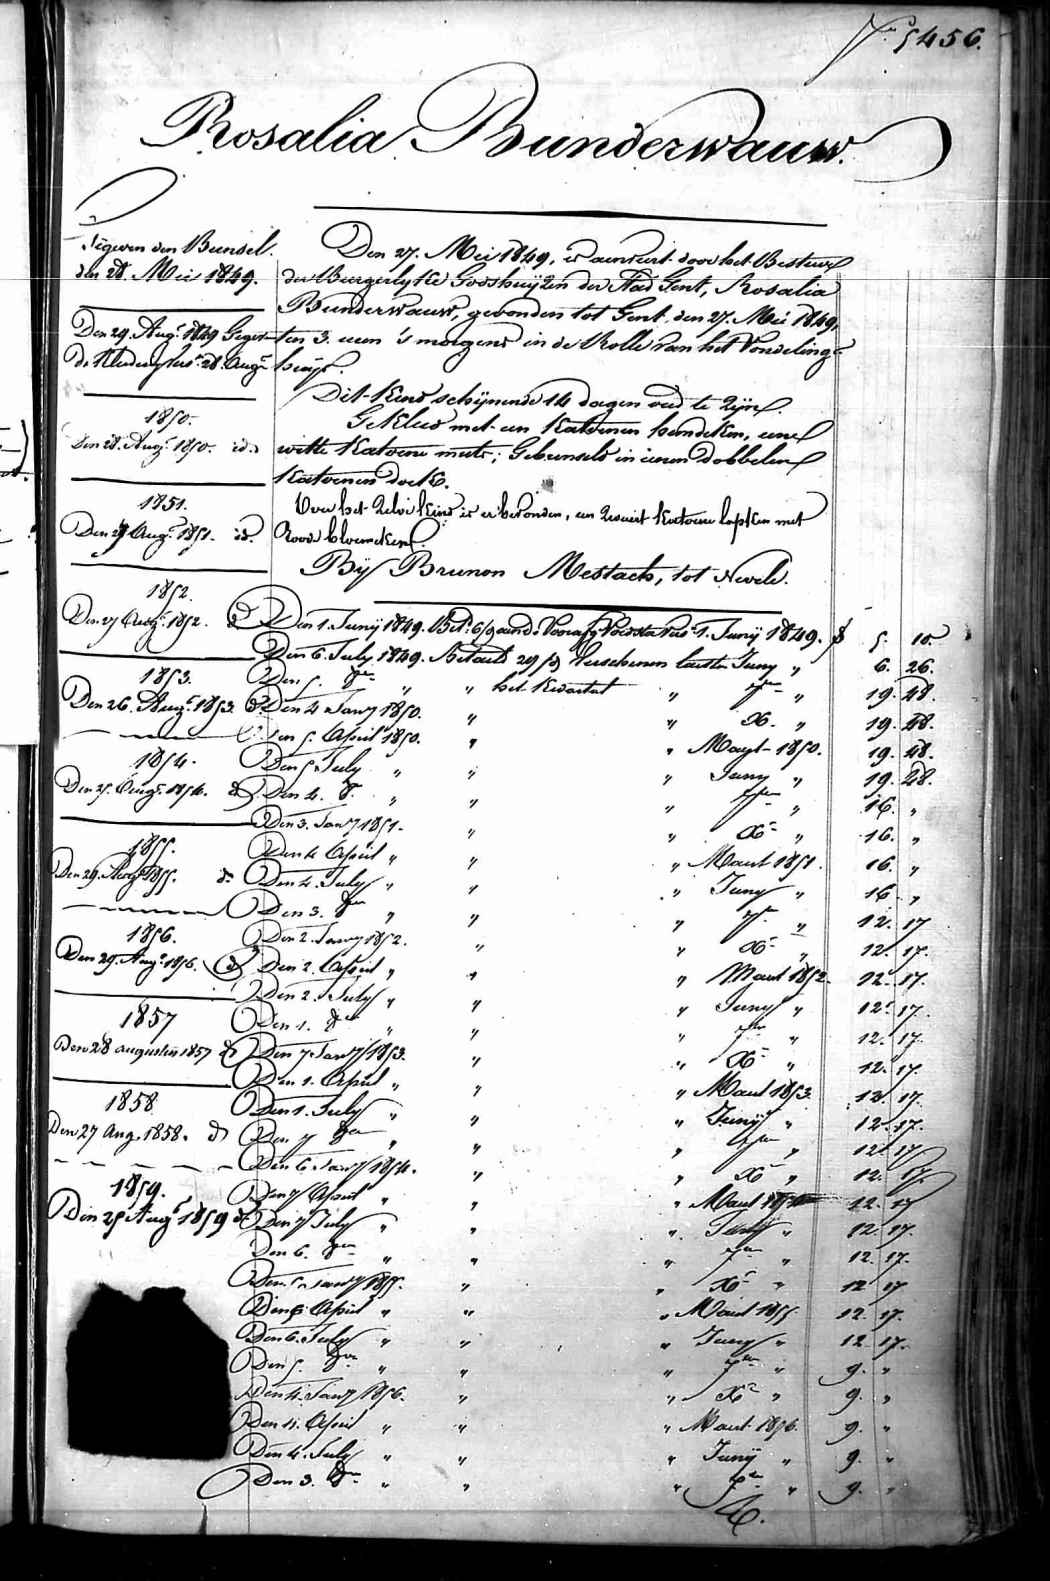 N.º 5456.
Rosalia Bunderwauw.
gegeven den Bunsel.
den 28. Mei 1849.
Den 29. Aug.t 1849 Gegev
28. Aug.t
1850.
den 28. Aug.t 1850. id.
1851.
Den 27 Aug.t 1851. id.
1852.
Den 27 Aug.t 1852. d
1853.
Den 26. Aug.t 1853. d
1854.
Den 25. Aug.t 1854. d
1855.
Den 29. Aug.t 1855. d.
1856.
Den 29. Aug.t 1856. d
1857
Den 28 augusti 1857 d
1858
Den 27 Aug. 1858. d
1859.
Den 25 Aug.t 1859 d
Den 27. Mei 1849, is aenveirt door het Bestuur
der Burgerlyke Godshuijzen der Stad Gent, Rosalia
Bunderwauw, gevonden tot Gent, den 27. Mei 1849,
ten 3. uren 's morgens in de Rolle van het Vondeling-
huijs.
Dit kind schijnende 14 dagen oud te zijn.
Gekleed met een katoenen hemdeken, eene
witte katoene muts; Gebunseld in eenen dobbelen
katoenen doek.
Over het zelve kind is er bevonden, een zwart katoene lapken met
Roode bloemekens.
Bij Brunon Mestach, tot Nevele.
Den 1. Junij 1849. Bet. 6/9 aend. 1. Junij 1849. 5. 10.
Den 6. July 1849. Betaelt 29/9 Verschenen laesten Juny " 6. 26.
Den 5. 8ber " " het kwartael " 7ber " 19. 28.
Den 4 Janry 1850. " " Xb. " 19. 28.
Den 5. April 1850. " " Maert 1850. 19. 28.
Den 5 July " " " Juny " 19. 28.
Den 4. 8. " " " 7ber " 16. "
Den 3. Janry 1851. " " Xr " 16. "
Den 4 April " " " Maert 1851. 16. "
Den 4. July " " " Juny " 16 "
Den 3. 8ber " " " 7br " 12. 17
Den 2. Janry 1852. " " Xr " 12. 17.
Den 2. April " " " Maert 1852. 12. 17.
Den 2. July " " " Juny " 12. 17.
Den 1. 8ber " " " 7ber " 12. 17.
Den 7. Janry 1853. " " Xr " 12. 17.
Den 1. April " " " Maert 1853. 12. 17.
Den 1. July " " " Junij " 12. 17.
Den 7 8ber " " " 7ber " 12. 17
Den 6. Janry 1854. " " Xr " 12. 17.
Den 7 April " " " Maert 1854 12. 17
Den 7 July " " " Junij " 12. 17.
Den 6. 8ber " " " 7ber " 12. 17.
Den 5 Janry 1855. " " Xr " 12 17
Den 6 April " " " Maert 1855 12. 17.
Den 6. July " " " Juny " 12 17.
Den 5. 8br " " " 7ber " 9. "
Den 4. Janry 1856. " " Xr " 9. "
Den 4. April " " " Maert 1856. 9. "
Den 4. July " " " Junij " 9. "
Den 3. 8br " " " 7br " 9. "